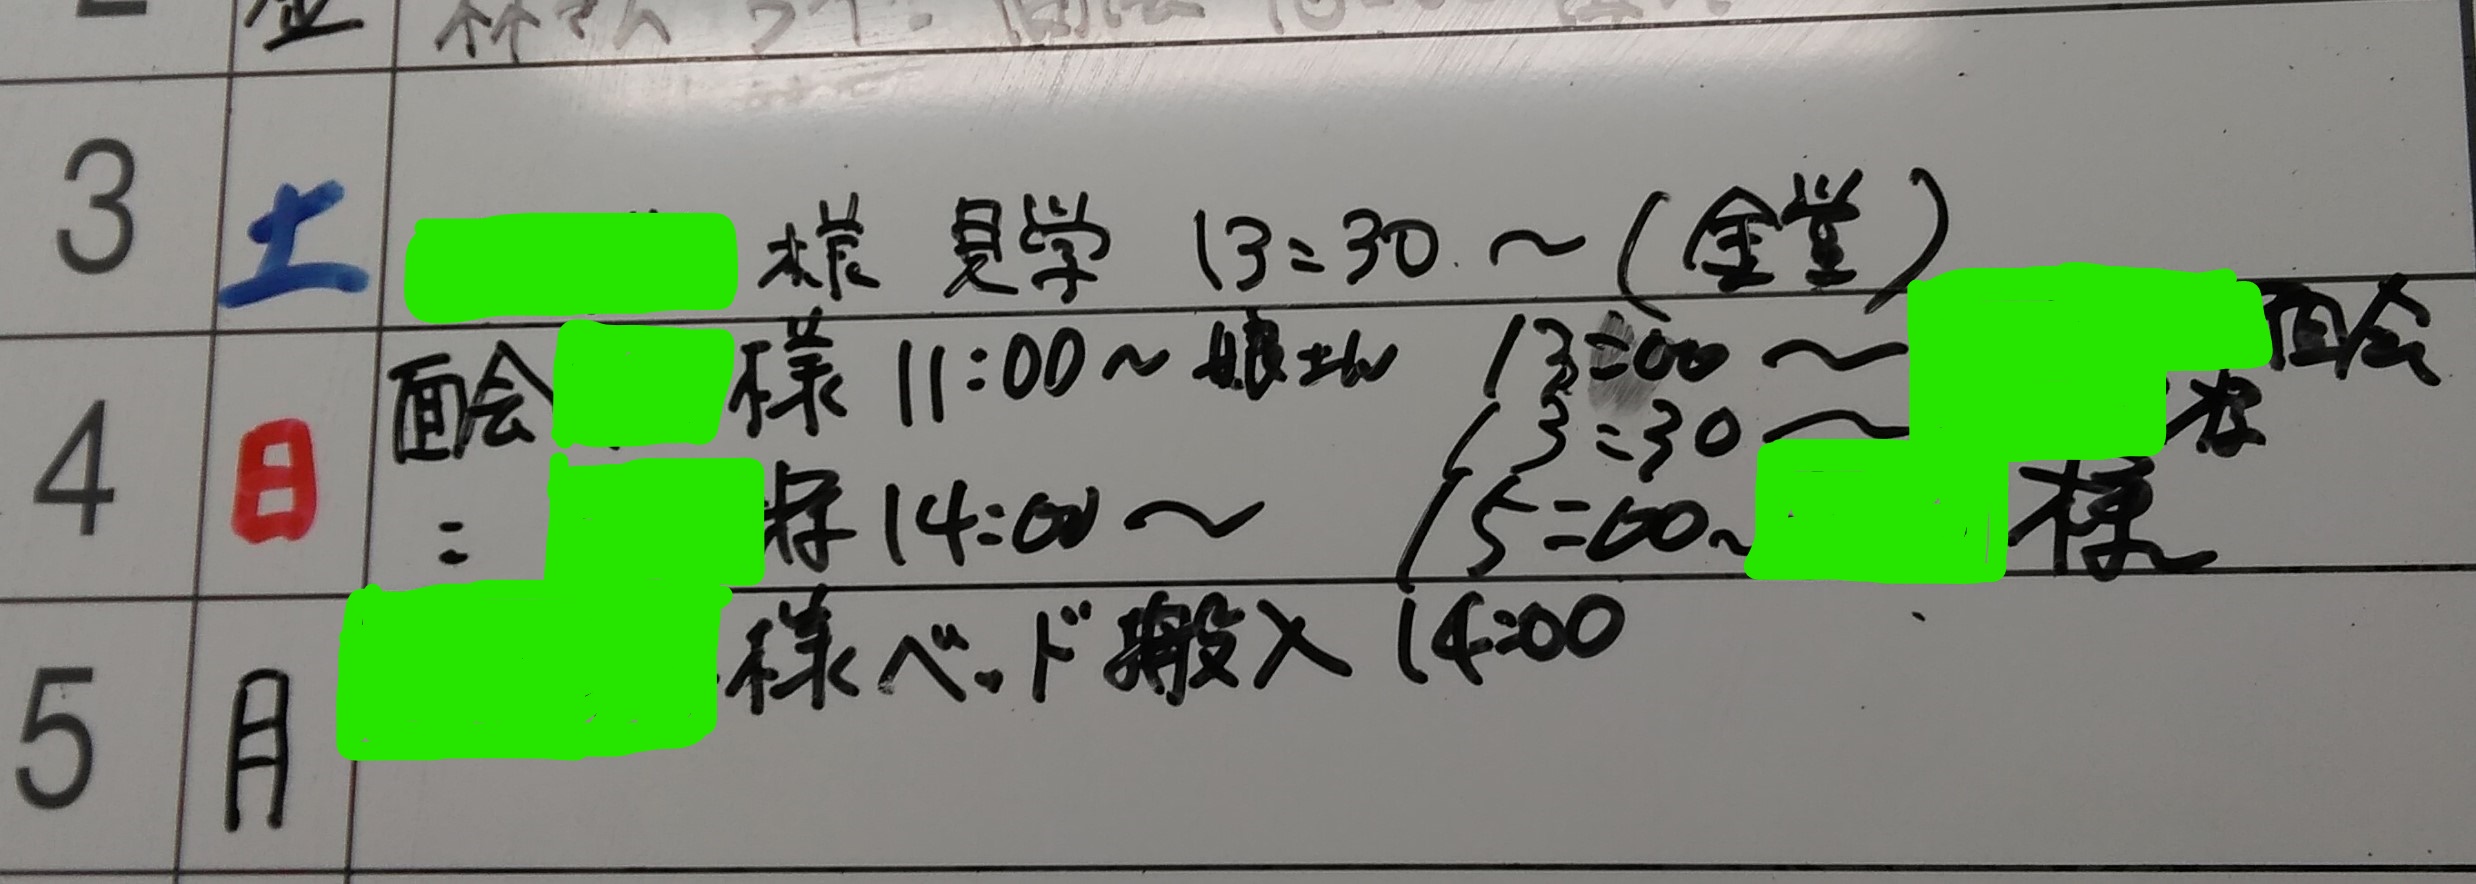 金
3 土 様 見学 13:30~(金堂)
4 日 面会 様 11:00~娘さん 13:00~ 面会
13:30~ 様
: 様 14:00~ 15:00~ 様
5 月 様 ベッド搬入 14:00